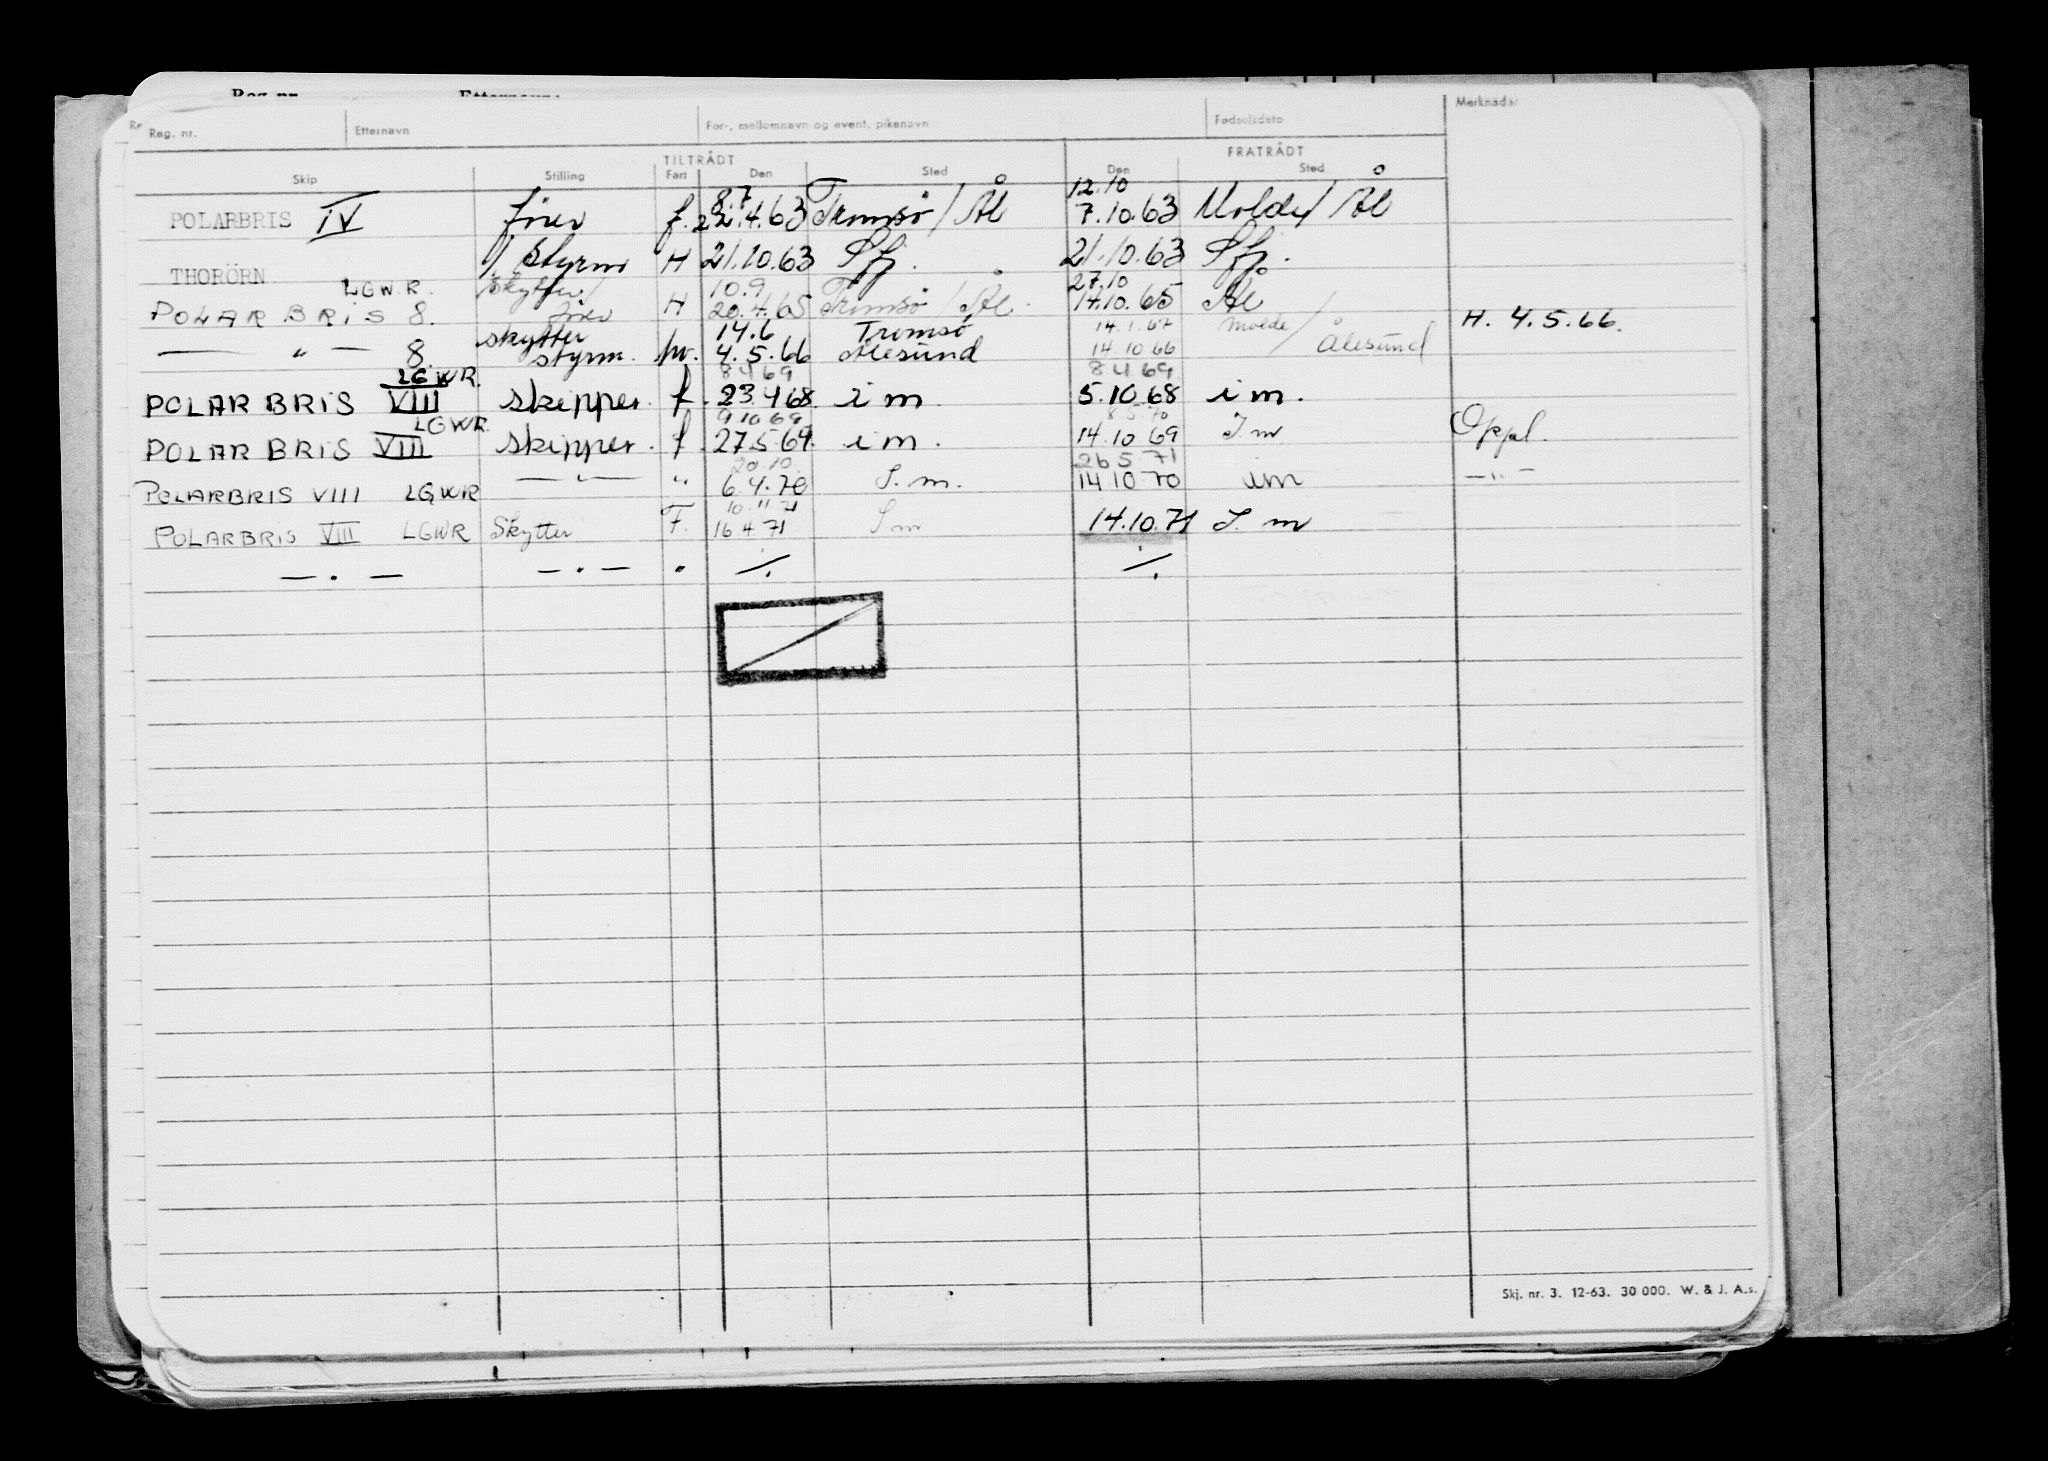 Reg. nr. Etternavn For-, mellomnavn og event. pikenavn Fødselsdato Merknader
TILTRÅDT FRATRÅDT
Skip Stilling Fart Den Sted Den Sted
8.7 12.10
POLARBRIS IV förer f. 22.4.63 Tromsö / Ål 7.10.63 Molde / Ål
THORÖRN styrm H 21.10.63 Sfj. 21.10.63 Sfj.
LGWR. Skytter/ 10.9 27.10
POLARBRIS 8. förer H 20.4.65 Tromsö / Ål. 14.10.65 Ål
skytter 14.6 Tromsö 14.1.67 Molde / H. 4.5.66.
— " — 8. styrm. 4.5.66 Ålesund 14.10 66 Ålesund
LGWR. 8 4 69 8 4 69
POLARBRIS VIII skipper. f. 23.4 68. i m. 5.10 68 i m.
LGWR 9.10 69 8.5.70
POLARBRIS VIII skipper. f. 27.5 69. i m. 14.10 69 I. m Oppl.
20.10. 26 5 71
POLARBRIS VIII LGWR — " — " 6.4.70 I. m. 14 10 70 im — " —
10.11.71
POLARBRIS VIII LGWR Skytter F. 16.4.71 I m 14.10.71 I. m
— . — — . — " ⁒ ⁒
Skj. nr. 3. 12-63. 30 000. W. & J. A.s.